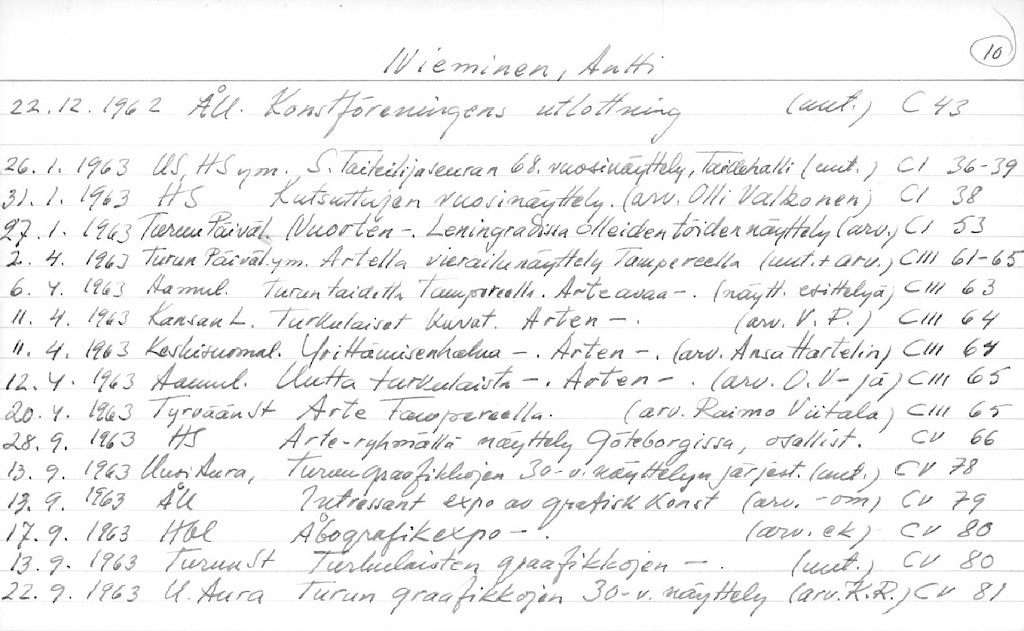 10
Nieminen, Antti
22.12.1962 ÅU. Konstföreningens utlottning (uut.) C 43
26.1. 1963 US, HS ym. S. Taiteilijaseuran 68. vuosinäyttely, Taidehalli (uut.) CI 36-39
31.1. 1963 HS Kutsuttujen vuosinäyttely. (arv. Olli Valkonen) CI 38
27.1. 1963 Turun Päiväl. Nuorten -. Leningradissa olleiden töiden näyttely (arv.) CI 53
2. 4. 1963 Turun Päiväl. ym. Artella vierailunäyttely Tampereella (uut. + arv.) CIII 61-65
6. 4. 1963 Aamul. Turun taidetta Tampereella. Arte avaa -. (näytt. esittelyä) CIII 63
11. 4. 1963 Kansan L. Turkulaiset kuvat. Arten -. (arv. V. P.) CIII 64
11. 4. 1963 Keskisuomal. Yrittämisenhalua -. Arten -. (arv. Ansa Hartelin) CIII 64
12. 4. 1963 Aamul. Uutta turkulaista -. Arten -. (arv. O.V-jä) CIII 65
20. 4. 1963 Tyrvään St Arte Tampereella. (arv. Raimo Viitala) CIII 65
28. 9. 1963 HS Arte-ryhmällä näyttely Göteborgissa, osallist. CV 66
13. 9. 1963 Uusi Aura, Turun graafikkojen 30-v. näyttelyn järjest. (uut.) CV 78
13. 9. 1963 ÅU Intressant expo av grafisk konst (arv. -om) CV 79
17. 9. 1963 Hbl Åbografikexpo -. (arv. ek) CV 80
13. 9. 1963 Turun St Turkulaisten graafikkojen -. (uut.) CV 80
22. 9. 1963 U. Aura Turun graafikkojen 30-v. näyttely (arv. K.R.) CV 81